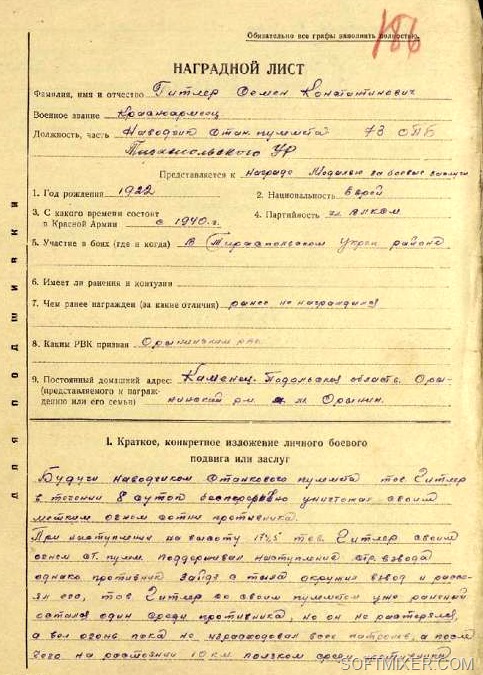 Обязательно все графы заполнить полностью.
186
НАГРАДНОЙ ЛИСТ
Фамилия, имя и отчество Гитлер Семен Константинович
Военное звание Красноармеец
Должность, часть Наводчик стан. пулемета 73 ОПБ
Тираспольского УР
Представляется к награде Медалью за боевые заслуги
1. Год рождения 1922 2. Национальность Еврей
3. С какого времени состоит
в Красной Армии с 1940 г. 4. Партийность чл. ВЛКСМ
5. Участие в боях (где и когда) В Тираспольском Укреп районе
6. Имеет ли ранения и контузии
7. Чем ранее награжден (за какие отличия) ранее не награждался
8. Каким РВК призван Орынинским рвк.
9. Постоянный домашний адрес: Каменец-Подольская область. Оры-
(представляемого к награж-
дению или его семьи) нинский р-н м. Орынин.
ДЛЯ ПОДШИВКИ
I. Краткое, конкретное изложение личного боевого
подвига или заслуг
Будучи наводчиком станкового пулемета тов Гитлер
в течении 8 суток беспрерывно уничтожал своим
метким огнем сотни противника.
При наступлении на высоту 174,5 тов. Гитлер своим
огнем ст. пулем. поддерживал наступление стр. взвода
однако противник зайдя с тыла окружил взвод и рассе-
ял его, тов Гитлер со своим пулеметом уже раненой
остался один среди противника, но он не растерялся,
а вел огонь пока не израсходовал всех патронов, а после
чего на расстоянии 10 км ползком среди противника
SOFTMIXER.COM